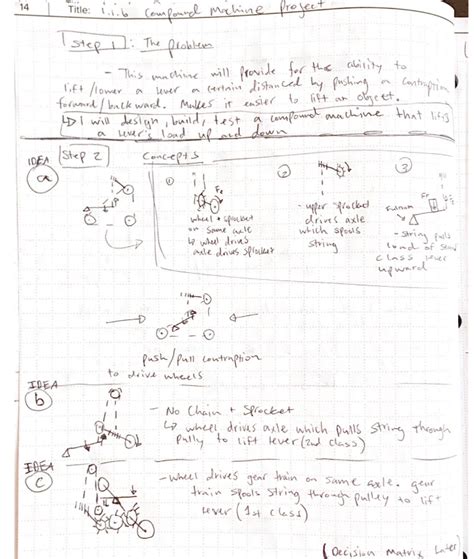 14 Title: 1.1.6 Compound Machine Project
Step 1: The problem
- This machine will provide for the ability to
lift/lower a lever a certain distanced by pushing a contraption
forward/backward. Makes it easier to lift an object.
↳ I will design, build, test a compound machine that lifts
a lever's load up and down
IDEA
a
Step 2
Concepts
①
②
③
wheel + sprocket
on same axle
↳ wheel drives
axle drives sprocket
- upper sprocket
drives axle
which spools
string
Fulcrum
- string pulls
load of second
class lever
upward
push/pull contraption
to drive wheels
IDEA
b
- No Chain + Sprocket
↳ wheel drives axle which pulls string through
pully to lift lever (2nd class)
IDEA
c
- wheel drives gear train on same axle. gear
train spools string through pulley to lift
lever (1st class)
(Decision Matrix Later)